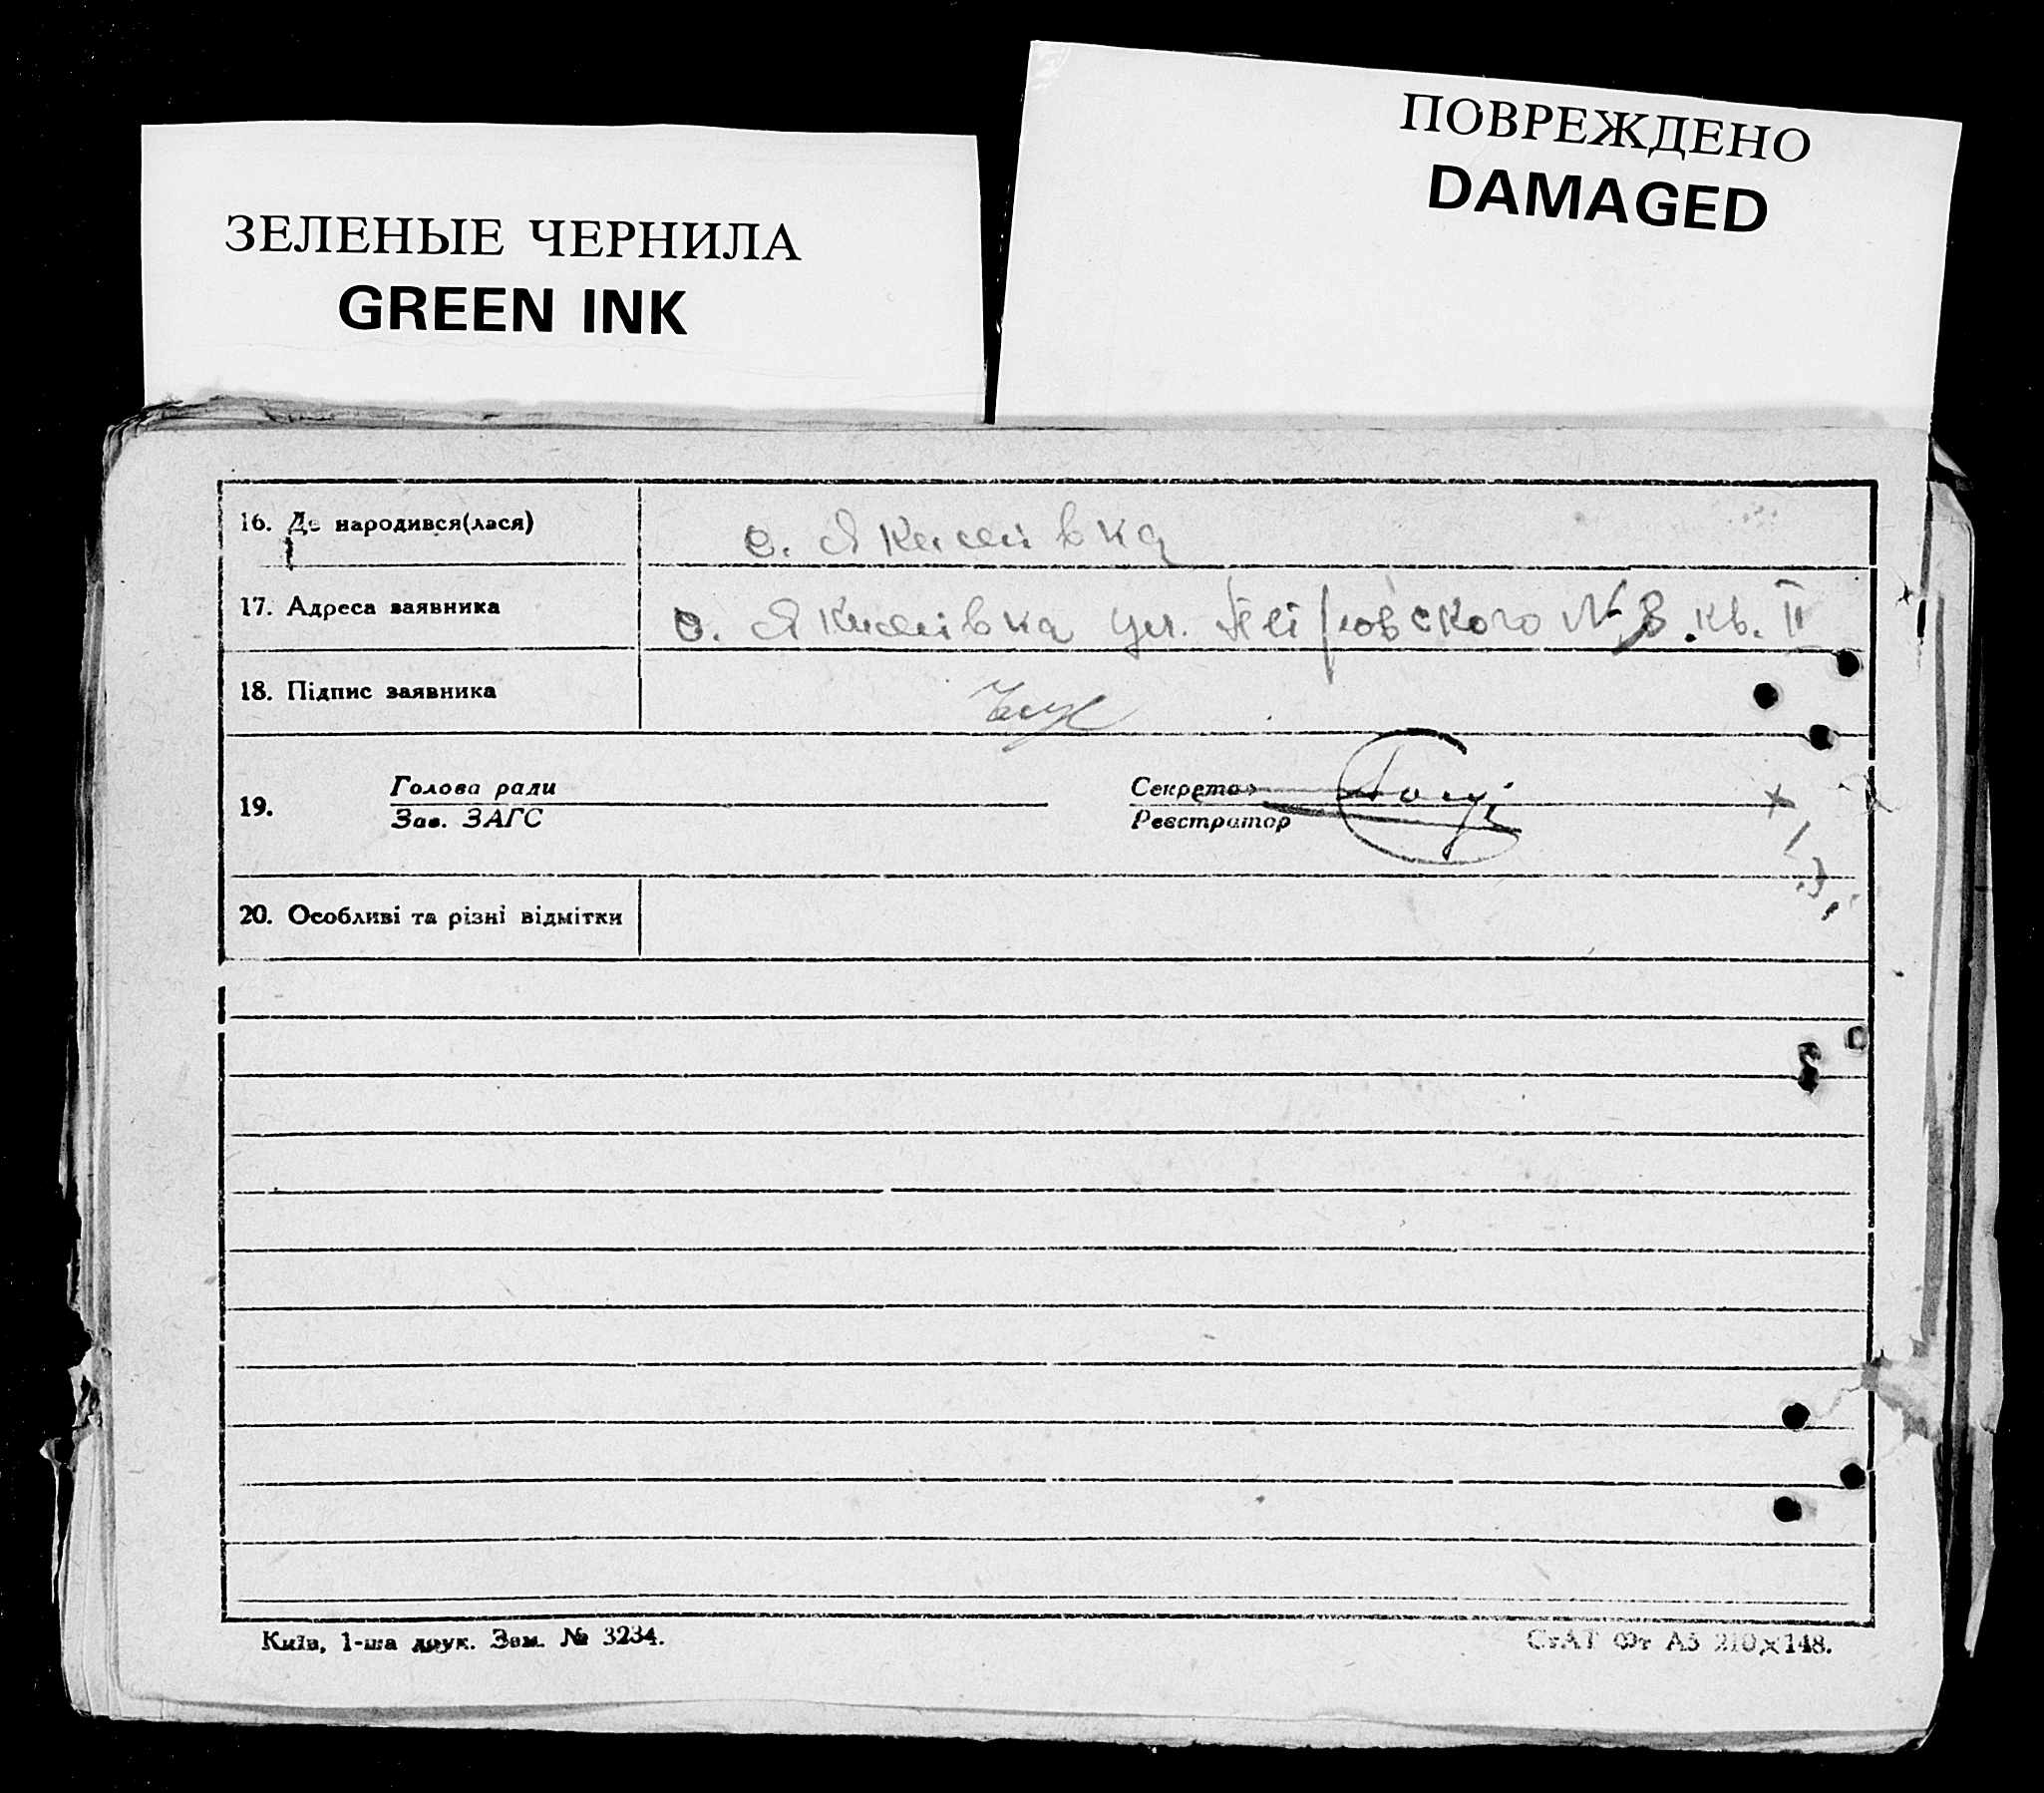 ЗЕЛЕНЫЕ ЧЕРНИЛА
GREEN INK
ПОВРЕЖДЕНО
DAMAGED
16. Де народився(лася)
с. Якимівка
17. Адреса заявника
с. Якимівка ул. №8. кв. II
18. Підпис заявника
19.
Голова ради
Зав. ЗАГС
Секретар
Реєстратор
20. Особливі та різні відмітки
Київ, 1-ша друк. Зам. № 3234.
СтАТ Фт А5 210×148.